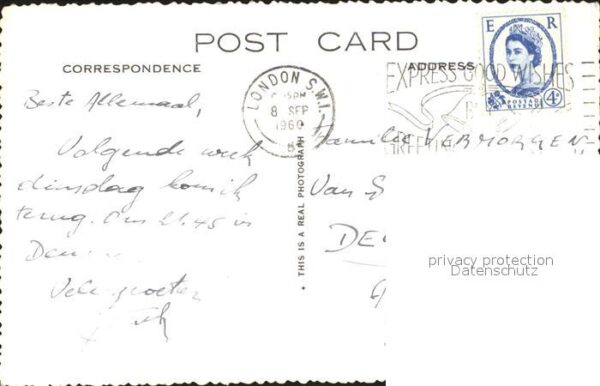 POST CARD
CORRESPONDENCE
ADDRESS
E R
POSTAGE
REVENUE
4D
LONDON S.W.1.
8 SEP
1960
EXPRESS GOOD WISHES
BY
GREETIN
Beste Allemaal,
Volgende week
dinsdag kom ik
terug. Om 21.45 in
Den
Vele groeten
THIS IS A REAL PHOTOGRAPH
Familie VERMORGEN,
Van
DE
privacy protection
Datenschutz